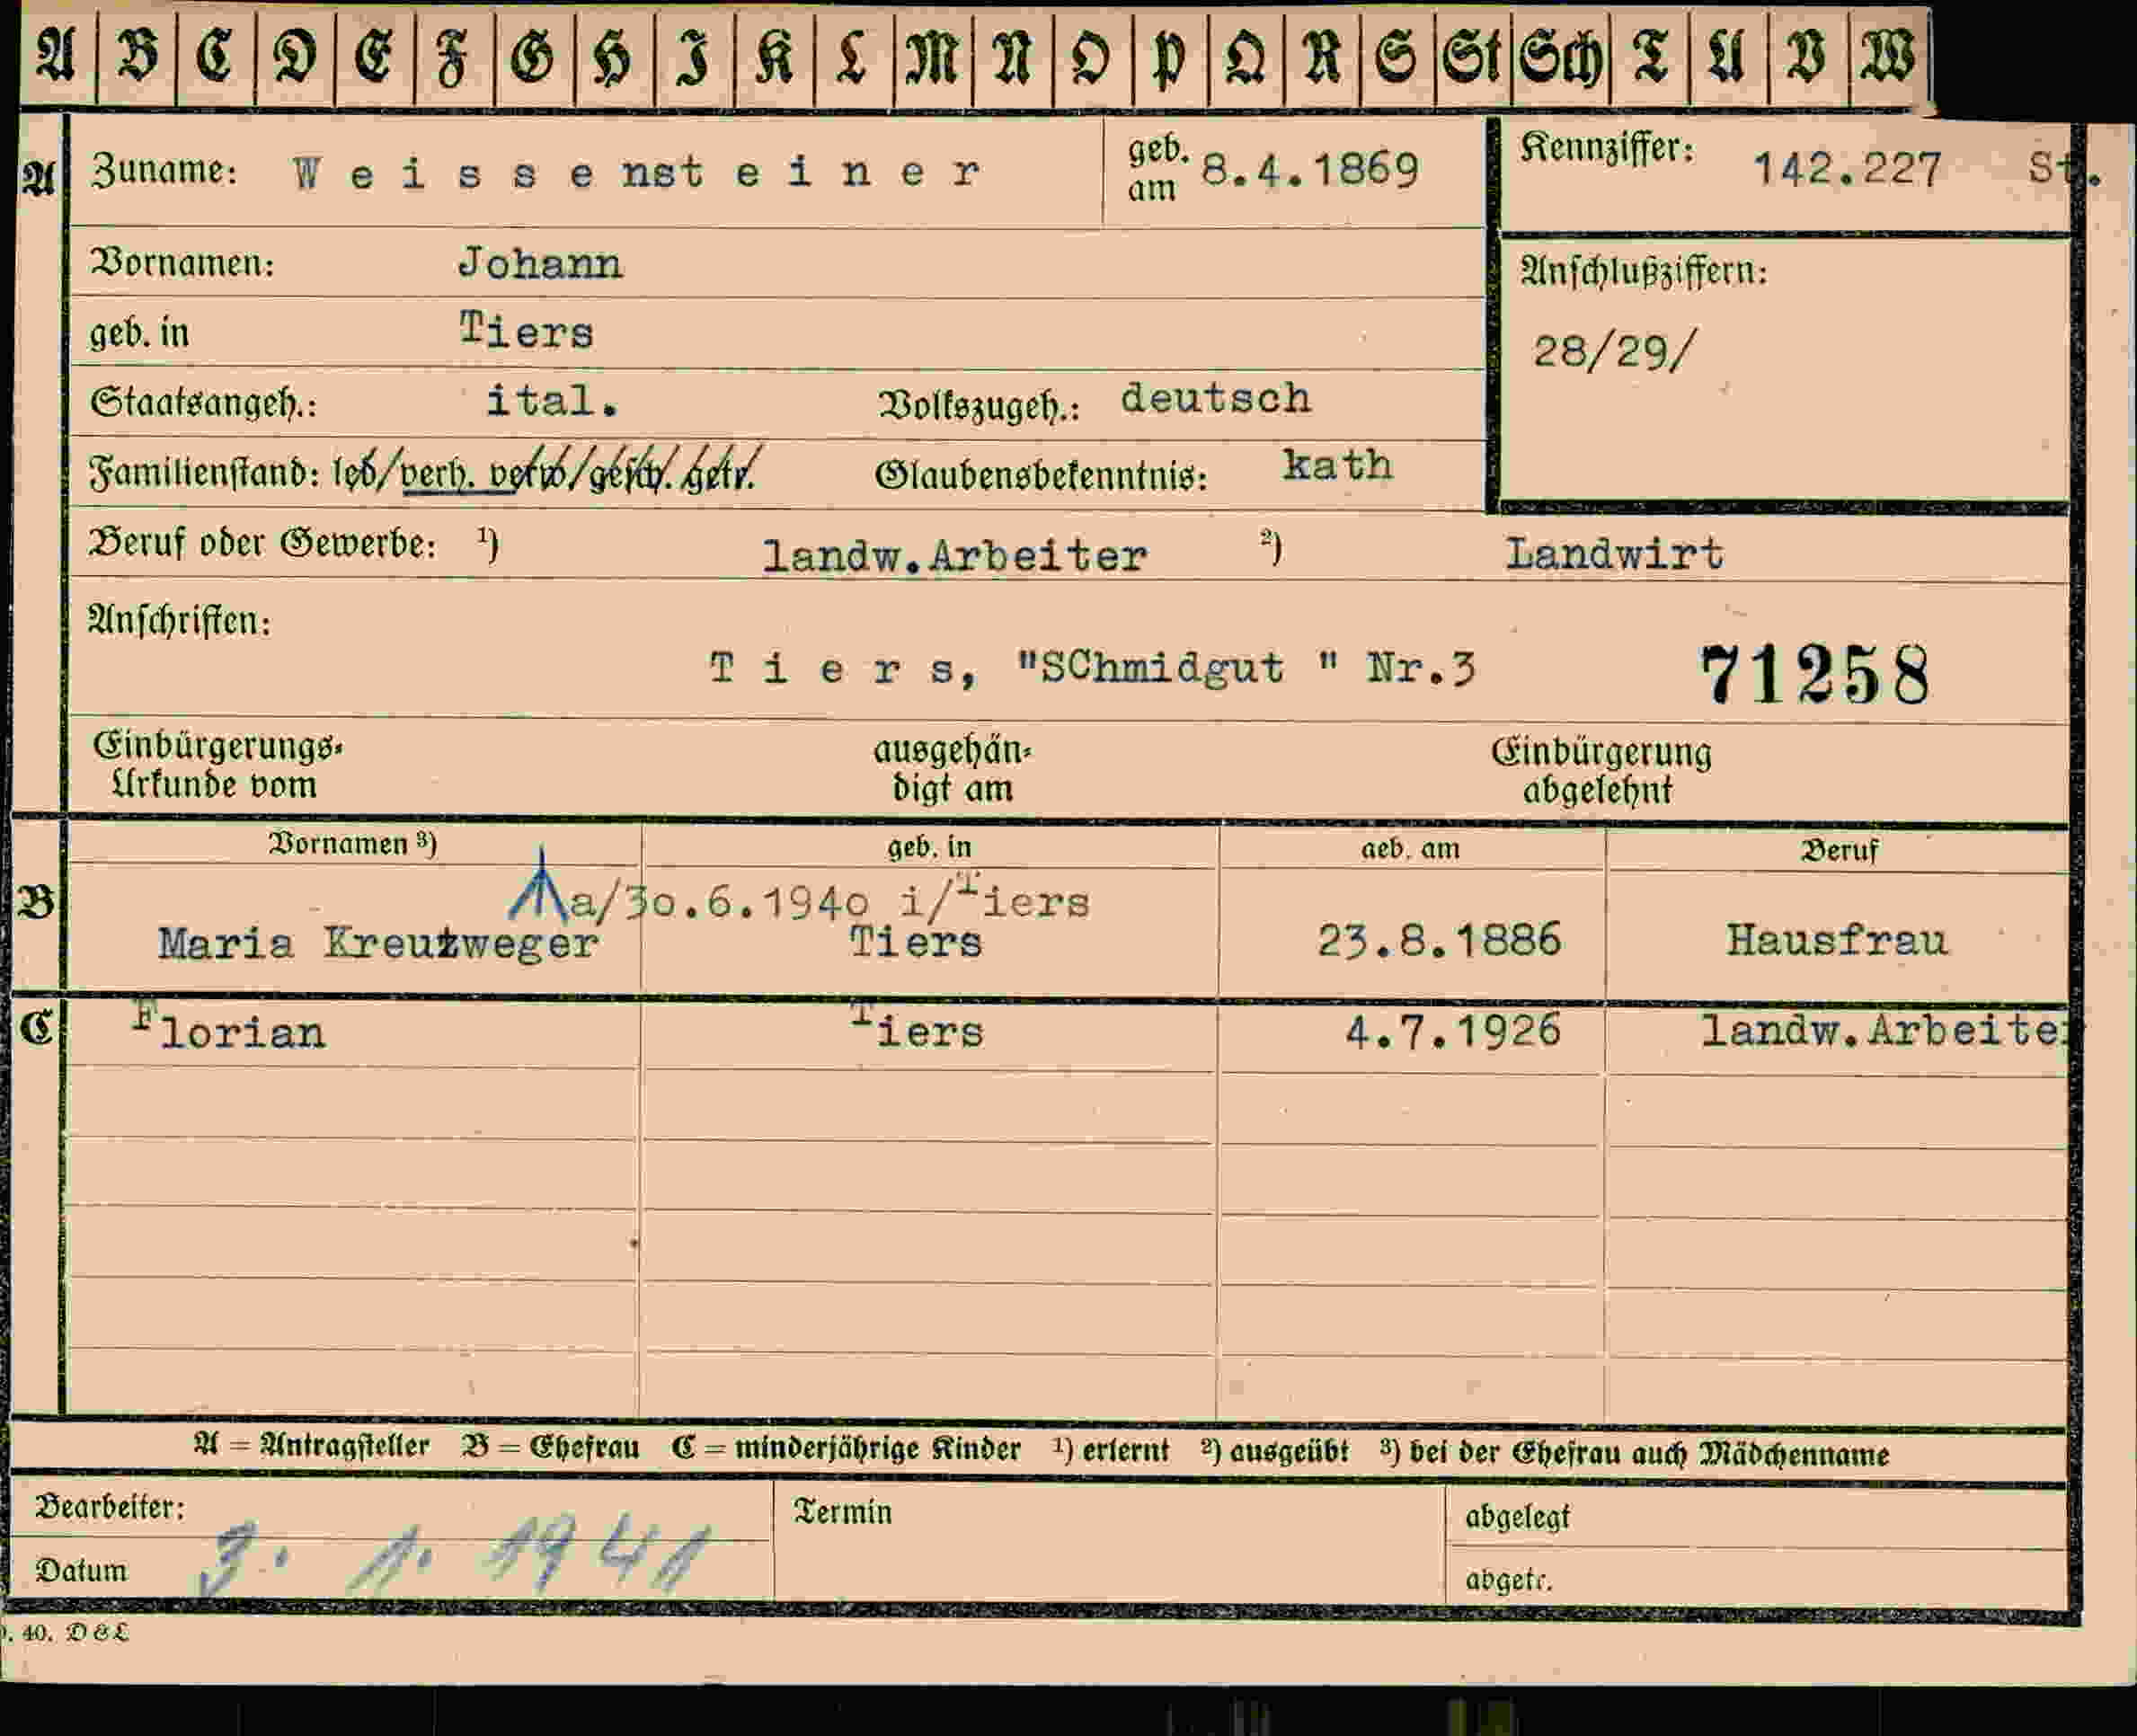 A B C D E F G H I K L M N O P Q R S St Sch T U V W
A Zuname: Weissensteiner geb. am 8.4.1869 Kennziffer: 142.227 St.
Vornamen: Johann
Anschlußziffern:
geb. in Tiers
28/29/
Staatsangeh.: ital. Volkszugeh.: deutsch
Familienstand: led/verh. verw/gesch. getr. Glaubensbekenntnis: kath
Beruf oder Gewerbe: ¹) landw.Arbeiter ²) Landwirt
Anschriften:
Tiers, "SChmidgut " Nr.3 71258
Einbürgerungs- Urkunde vom ausgehän- digt am Einbürgerung abgelehnt
Vornamen ³) geb. in geb. am Beruf
B a/30.6.1940 i/Tiers
Maria Kreuzweger Tiers 23.8.1886 Hausfrau
C Florian Tiers 4.7.1926 landw.Arbeiter
A = Antragsteller B = Ehefrau C = minderjährige Kinder ¹) erlernt ²) ausgeübt ³) bei der Ehefrau auch Mädchenname
Bearbeiter: Termin abgelegt
Datum 3. 1. 1941 abgetr.
. 40. D & L